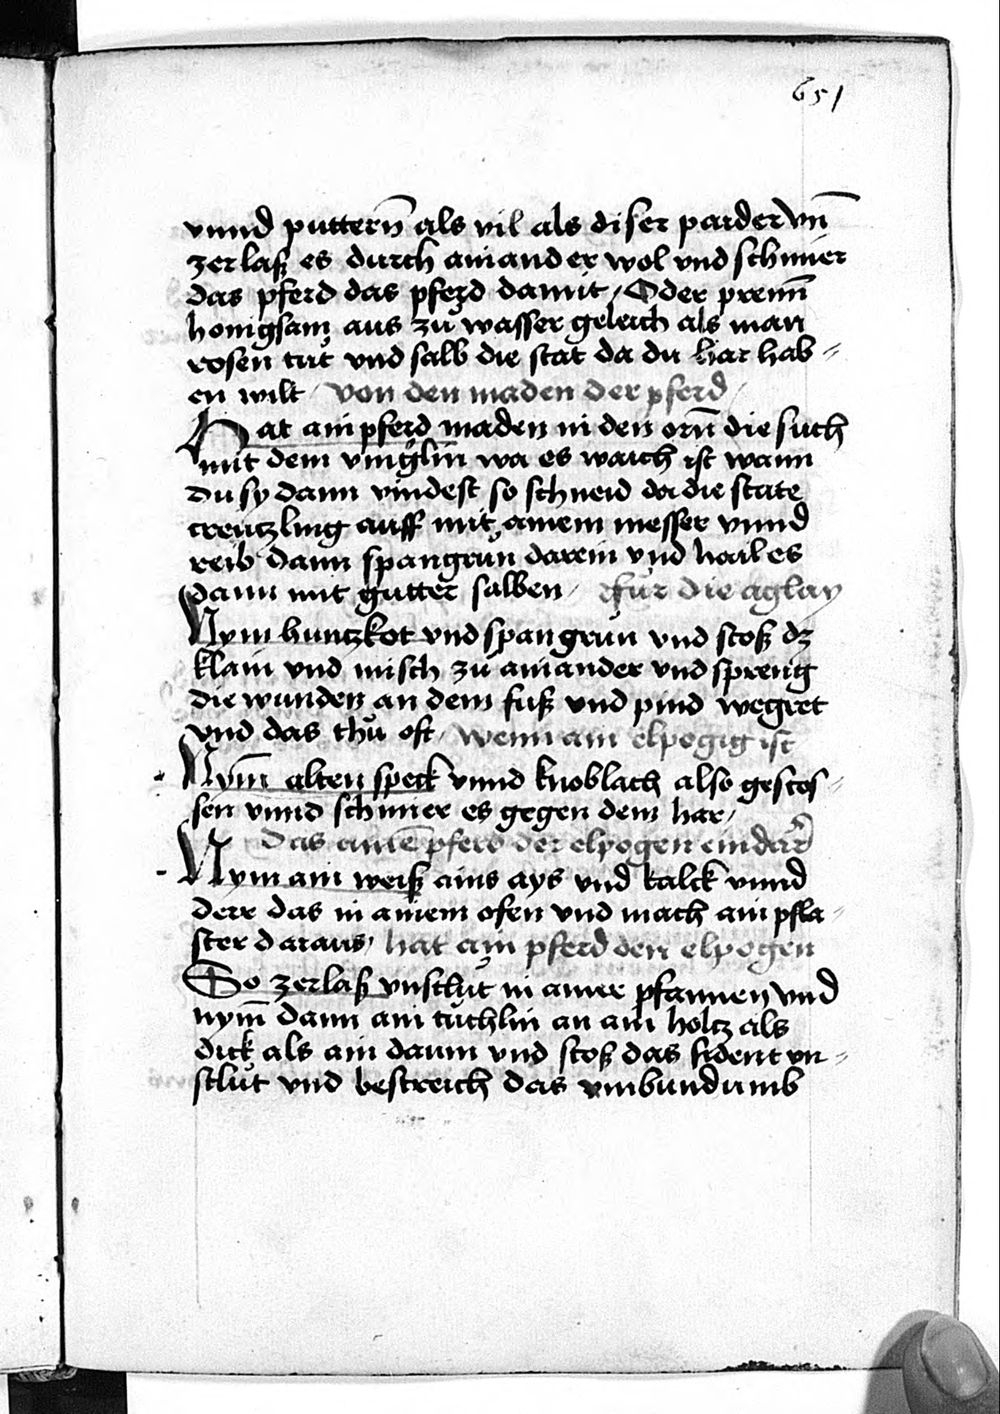 651
vnnd putterñ als vil als diser parder vñ
zerlaß es durch ainander wol vnd schmier
das pferd das pferd damit / Oder prenñ
honigsam aus zů wasser geleich als man
rosen tůt vnd salb die stat da du har hab-
en wilt / von den maden der pferd /
Hat ain pferd maden in den orñ die such
mit dem vinglin wa es waich ist wann
du sy dann vindest so schneid da die state
creutzling auff mit ainem messer vnnd
reib dann spangrün darein vnd hail es
dann mit gutter salben / für die aglay
Nym huntzkot vnd spangrün vnd stoß dz
klain vnd misch zů ainander vnd spreng
die wunden an dem fuß vnd pind wegret
vnd das thů oft / wenn ain elpogig ist
Nym̄ alten speck vnnd knoblach also gestos-
sen vnnd schmier es gegen dem har /
das ainē pferd der elpogen eindar
Nym ain weiß ains ays vnd kalck vnnd
derr das in ainem ofen vnd mach ain pfla-
ster daraus / hat ain pferd den elpogen
So zerlaß vnschlit in ainer pfannen vnd
nym̄ dann ain tüchlin an ain holtz als
dick als ain daum vnd stoß das sident vn-
schlit vnd bestreich das vmbundumb